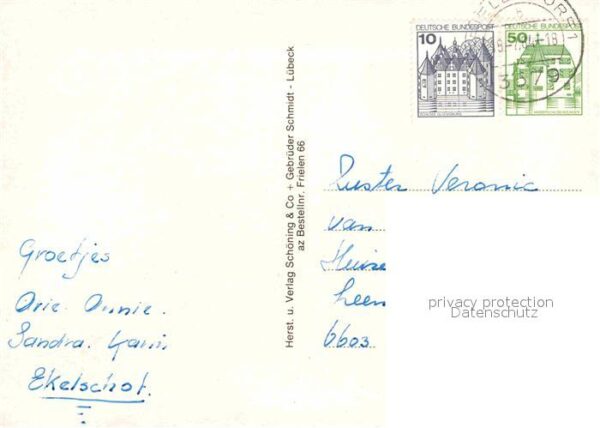 10
DEUTSCHE BUNDESPOST
50
DEUTSCHE BUNDESPOST
3579
Herst. u. Verlag Schöning & Co + Gebrüder Schmidt - Lübeck
az Bestellnr. Frielen 66
Zuster Veronic
van
Heinze
Leen
6603
privacy protection
Datenschutz
Groetjes
Arie. Annie.
Sandra. Karin
Ekelschot.